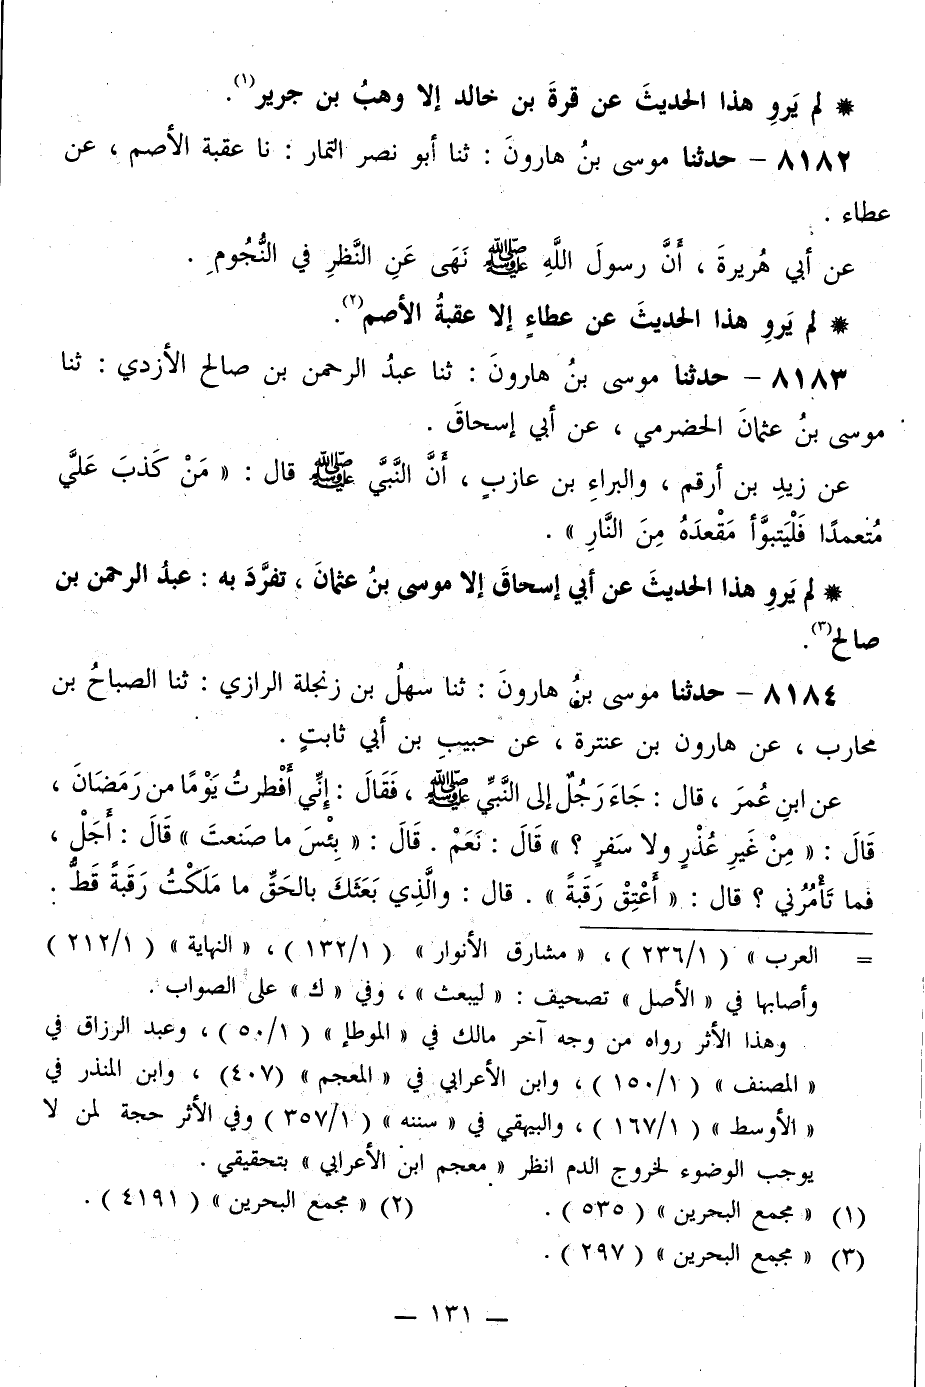 * لم يَروِ هذا الحديثَ عن قرةَ بن خالد إلا وهبُ بن جرير(١).
٨١٨٢ - حدثنا موسى بنُ هارونَ : ثنا أبو نصر التمار : نا عقبة الأصم ، عن
عطاء .
عن أبي هُريرةَ ، أَنَّ رسولَ اللَّهِ ﷺ نَهَى عَنِ النَّظرِ في النُّجُومِ .
* لم يَروِ هذا الحديثَ عن عطاءٍ إلا عقبةُ الأصم(٢).
٨١٨٣ - حدثنا موسى بنُ هارونَ : ثنا عبدُ الرحمن بن صالح الأزدي : ثنا
موسى بنُ عثمانَ الحضرمي ، عن أبي إسحاقَ .
عن زيدِ بن أرقم ، والبراءِ بن عازبٍ ، أَنَّ النَّبيَّ ﷺ قال : « مَنْ كَذبَ عَليَّ
مُتعمدًا فَلْيَتبوَّأ مَقْعدَهُ مِنَ النَّارِ » .
* لم يَروِ هذا الحديثَ عن أبي إسحاقَ إلا موسى بنُ عثمانَ ، تفرَّدَ به : عبدُ الرحمن بن
صالح(٣).
٨١٨٤ - حدثنا موسى بنُ هارونَ : ثنا سهلُ بن زنجلة الرازي : ثنا الصباحُ بن
محارب ، عن هارون بن عنترة ، عن حبيبِ بن أبي ثابتٍ .
عن ابنِ عُمرَ ، قال : جَاءَ رَجُلٌ إلى النَّبيِّ ﷺ ، فَقَالَ : إِنِّي أَفْطرتُ يَوْمًا من رَمَضَانَ ،
قَالَ : « مِنْ غَيرِ عُذْرٍ ولا سَفرٍ ؟ » قَالَ : نَعَمْ . قَالَ : « بِئْسَ ما صَنعتَ » قَالَ : أَجَلْ ،
فما تَأْمُرُني ؟ قال : « أَعْتِقْ رَقَبةً » . قال : والَّذِي بَعَثَكَ بالحَقِّ ما مَلَكْتُ رَقَبةً قَطُّ .
= العرب » ( ٢٣٦/١ ) ، « مشارق الأنوار » ( ١٣٢/١ ) ، « النهاية » ( ٢١٢/١ )
وأصابها في « الأصل » تصحيف : « ليبعث » ، وفي « ك » على الصواب .
وهذا الأثر رواه من وجه آخر مالك في « الموطإ » ( ٥٠/١ ) ، وعبد الرزاق في
« المصنف » ( ١٥٠/١ ) ، وابن الأعرابي في « المعجم » (٤٠٧) ، وابن المنذر في
« الأوسط » ( ١٦٧/١ ) ، والبيهقي في « سننه » ( ٣٥٧/١ ) وفي الأثر حجة لمن لا
يوجب الوضوء لخروج الدم انظر « معجم ابن الأعرابي » بتحقيقي .
(١) « مجمع البحرين » ( ٥٣٥ ) . (٢) « مجمع البحرين » ( ٤١٩١ ) .
(٣) « مجمع البحرين » ( ٢٩٧ ) .
- ١٣١ -